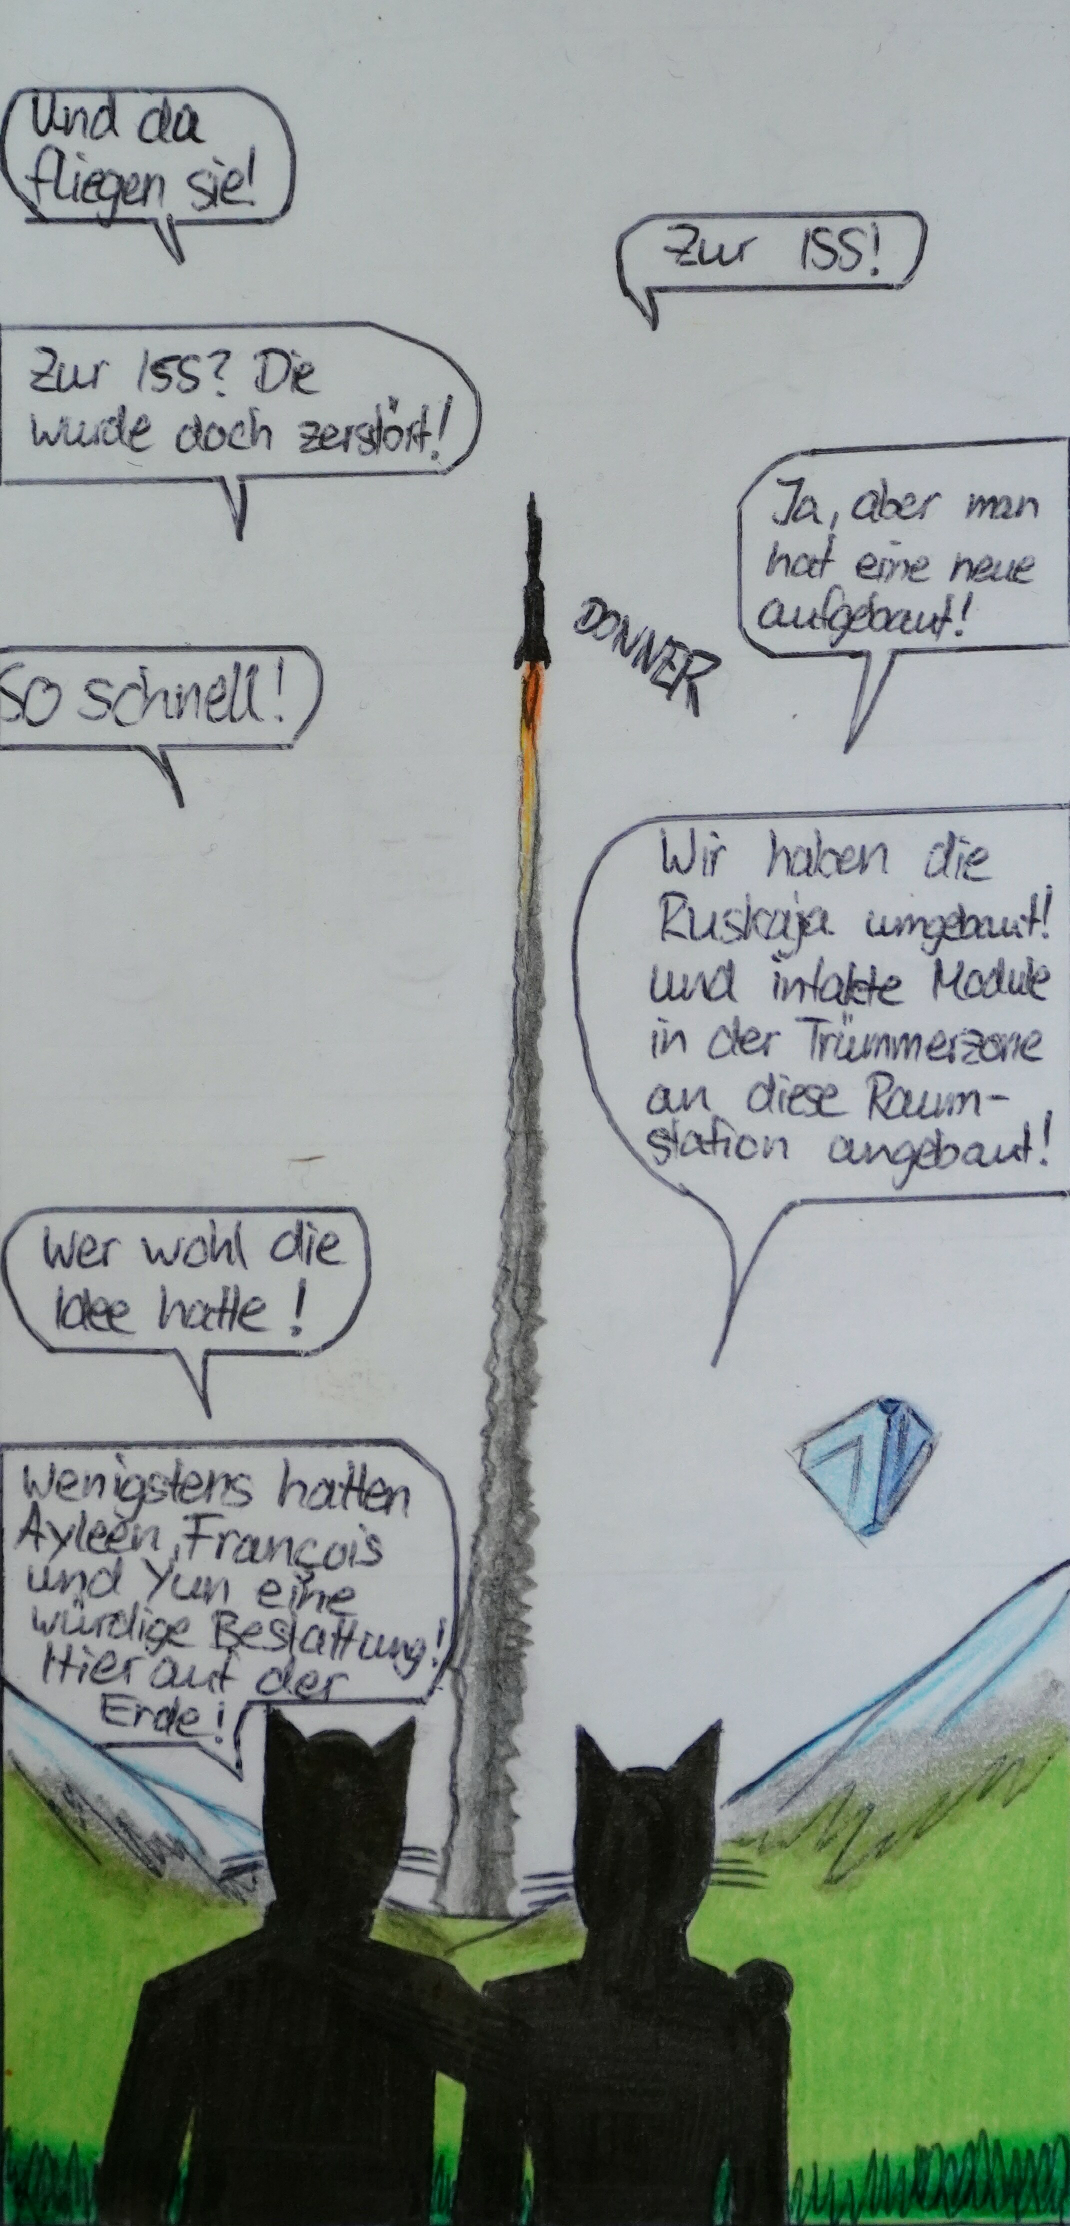 Und da
fliegen sie!
Zur ISS!
Zur ISS? Die
wurde doch zerstört!
Ja, aber man
hat eine neue
aufgebaut!
DONNER
So schnell!
Wir haben die
Ruskaja umgebaut!
und intakte Module
in der Trümmerzone
an diese Raum-
station angebaut!
Wer wohl die
Idee hatte!
Wenigstens hatten
Ayleen, François
und Yun eine
würdige Bestattung!
Hier auf der
Erde!